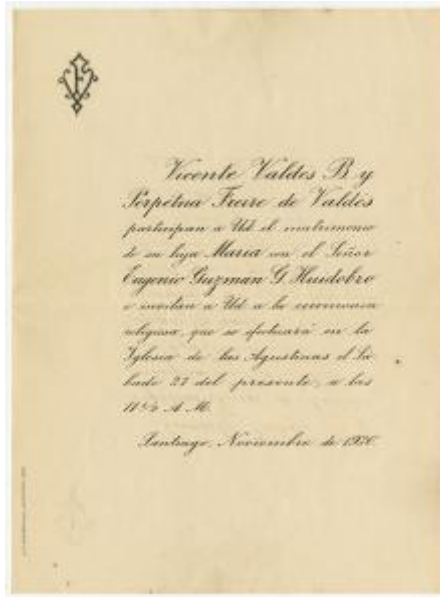 Vicente Valdes B y
Perpetua Freire de Valdés
participan a Ud el matrimonio
de su hija María con el Señor
Eugenio Guzmán G Huidobro
e invitan a Ud a la ceremonia
religiosa, que se efectuará en la
Iglesia de las Agustinas el Sá-
bado 27 del presente, a las
11½ A.M.
Santiago, Noviembre de 1920.